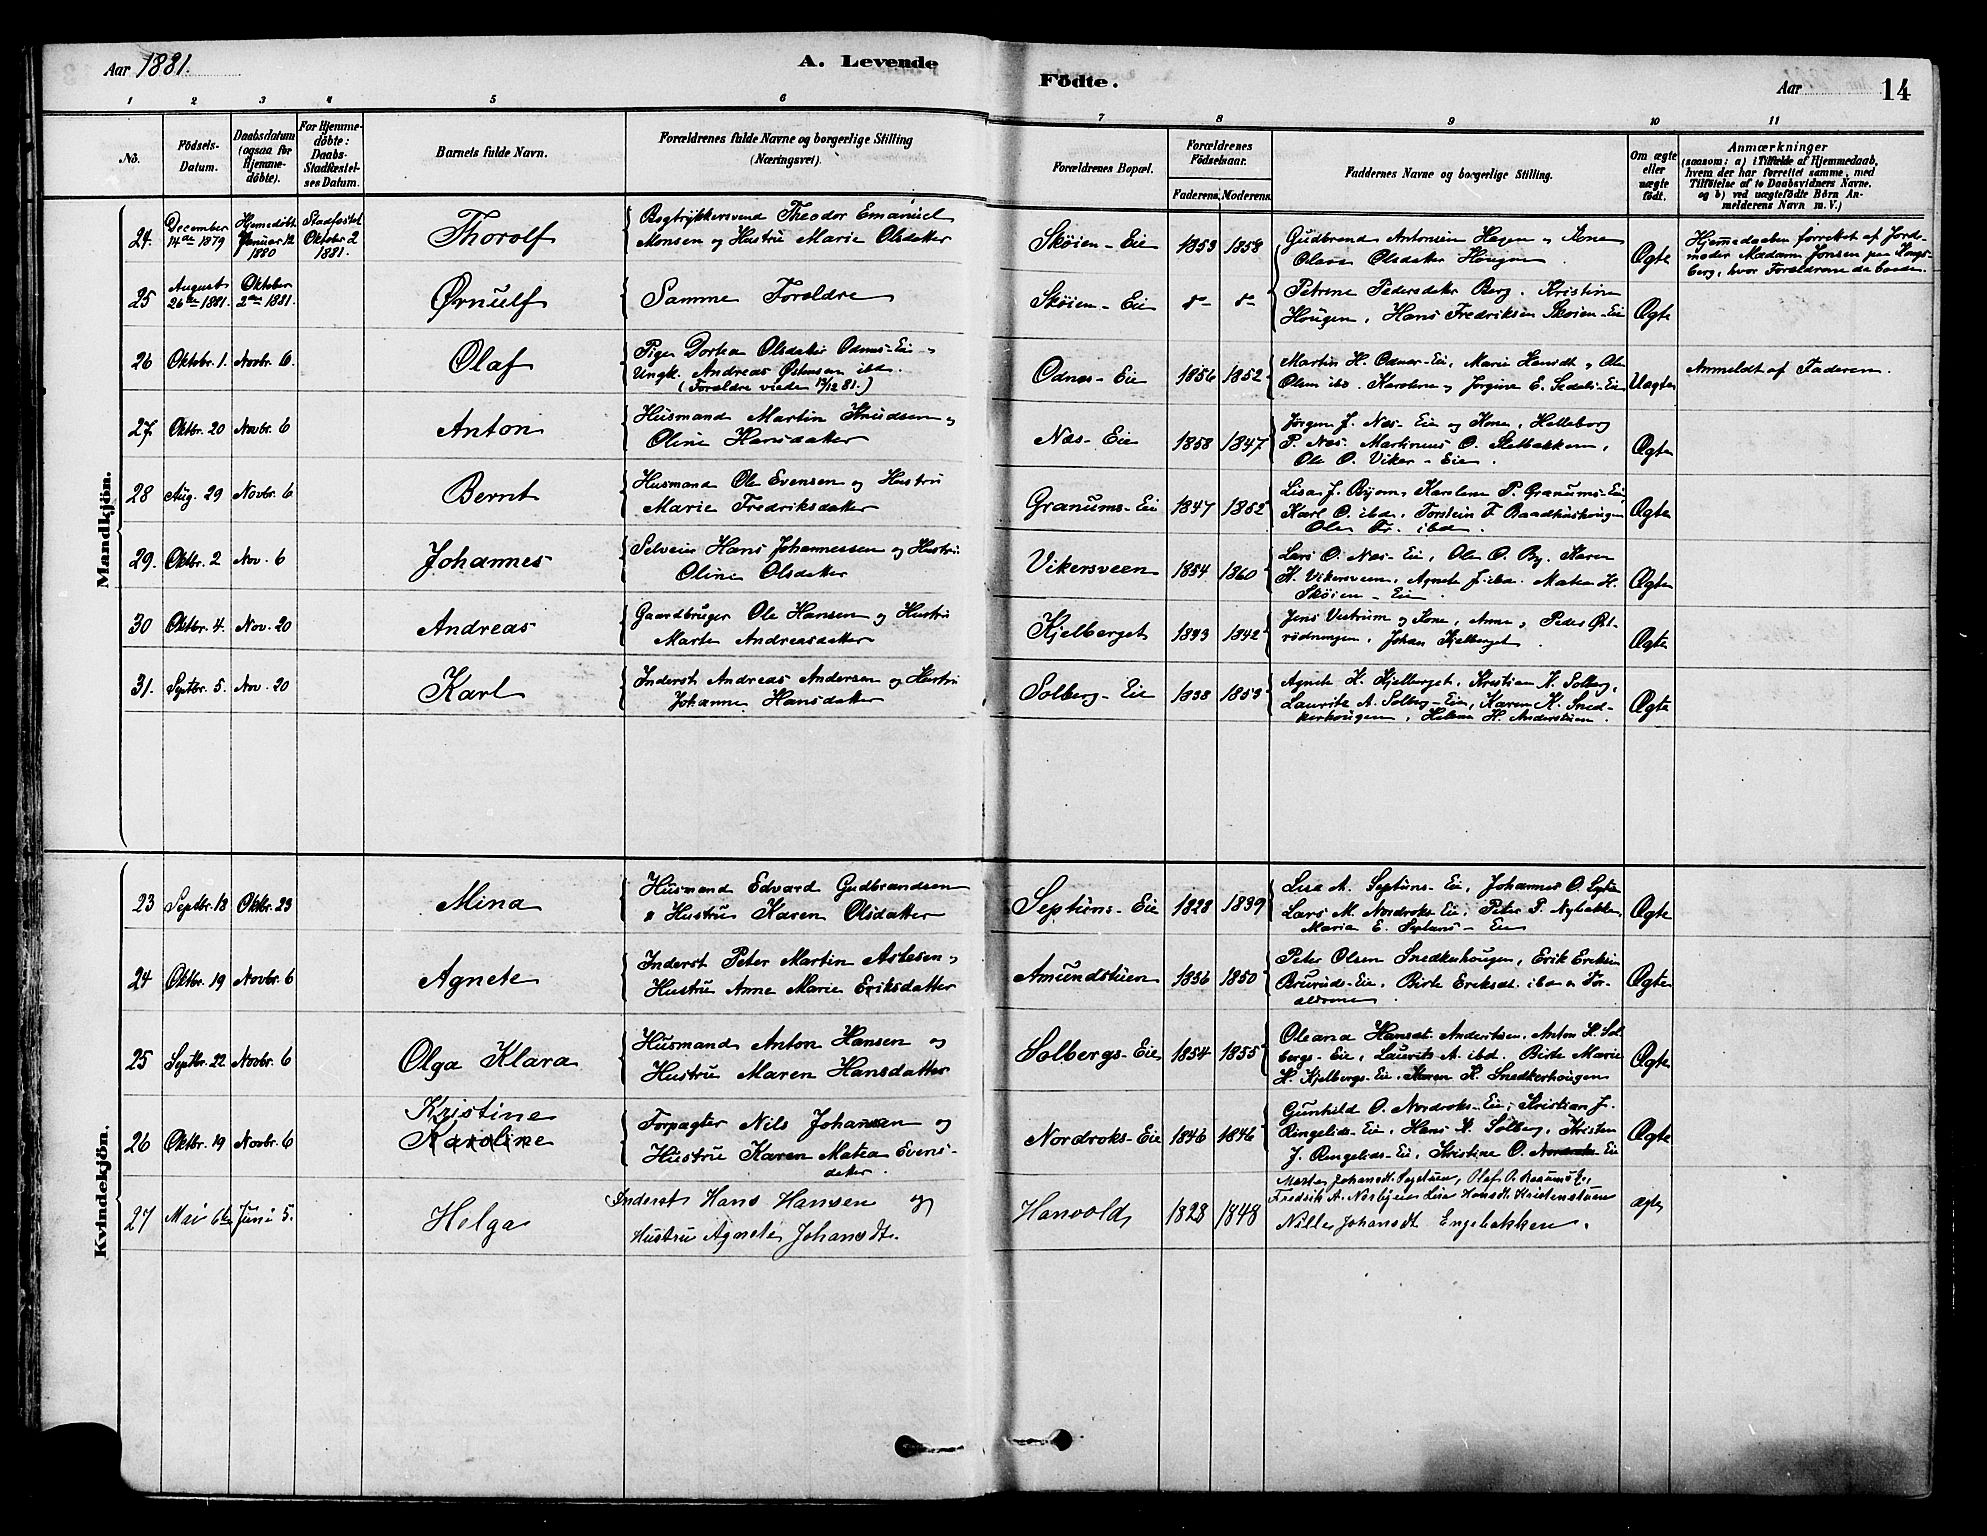 Aar 1881.
A. Levende
Födte.
Aar
14
1 2 3 4 5 6 7 8 9 10 11
No.
Födsels-Datum.
Daabsdatum (ogsaa for Hjemme-döbte).
For Hjemme-döbte: Daabs-Stadfæstel-ses Datum.
Barnets fulde Navn.
Forældrenes fulde Navne og borgerlige Stilling (Næringsvei).
Forældrenes Bopæl.
Forældrenes Födselsaar.
Faderens. Moderens.
Faddernes Navne og borgerlige Stilling.
Om ægte eller uægte födt.
Anmærkninger
(saasom: a) i Tilfælde af Hjemmedaab, hvem der har forrettet samme, med Tilföielse af to Daabsvidners Navne, og b) ved uægtefödte Börn An-melderens Navn m. V.)
Mandkjön.
24. December 14de 1879 Hjemedöbt Januar 12 1880 Stadfæstet Oktober 2 1881. Thorolf
Bogtrykkersvend Theodor Emanuel
Monsen og Hustru Marie Olsdatter
Skøien-Eie 1853 1858
Gudbrand Antonsen Hagen og Kone
Olava Olsdatter Hougen.
Ægte
Hjemmedaaben forrettet af Jord-
moder Madam Jonsen paa Kongs-
berg, hvor Forældrene da boede.
25 August 26de 1881. Oktober 2den 1881. Ørnulf
Samme Forældre
Skøien-Eie
Petrene Pedersdatter Berg. Kristine
Hougen, Hans Fredriksen Skøien-Eie
Ægte
26 Oktbr. 1. Novbr. 6. Olaf
Pige Dortea Olsdatter Odnes-Eie
Ungk. Andreas Østensen ibd.
(Forældre viede 13/12 81.)
Odnæs-Eie 1856 1852
Martin H. Odnæs-Eie, Marie Hansdt. Ole
Olsen ibd. Karoline og Jørgine E. Sedals-Eie
Uægte
Anmeldt af Faderen.
27. Oktbr. 20 Novbr. 6 Anton
Husmand Martin Knudsen og
Oline Hansdatter
Næs-Eie 1858 1847
Jørgen J. Næs-Eie og Kone, Helleborg
P. Næs. Martinius O. Sletbakken,
Ole O. Viker-Eie.
Ægte
28 Aug. 29 Novbr. 6 Bernt
Husmand Ole Evensen og Hustru
Marie Fredriksdatter
Granums-Eie 1847 1852
Lisa J. Byom, Karoline P. Granums-Eie
Karl O. ibd, Torstein F. Baadhushougen
Ole Fr. ibd.
Ægte
29. Oktbr. 2 Nov. 6 Johannes
Selveier Hans Johannessen og Hustru
Oline Olsdatter
Vikersveen 1854 1860
Lars O. Næs-Eie, Ole O. By. Karen
H. Vikersveen, Agnete J. ibd. Matea H.
Skøien-Eie.
Ægte
30 Oktbr. 4. Nov. 20 Andreas
Gaardbruger Ole Hansen og Hustru
Marte Andreasdatter
Kjelberget 1843 1842
Jens Vestrum og Kone, Anne og Peder Øst-
rødningen, Johan Kjelberget.
Ægte
31. Septbr. 5. Nov. 20 Karl
Inderst Andreas Andersen og Hustru
Johanne Hansdatter
Solberg-Eie 1838 1853
Agnete H. Kjelberget, Kristian K. Solberg,
Lauritz A. Solberg-Eie, Karen K. Sned-
kerhougen, Helene H. Anderstuen.
Ægte
Kvindekjön.
23 Septbr. 18 Oktbr. 23 Mina
Husmand Edvard Gudbrandsen
& Hustru Karen Olsdatter
Septuns-Eie 1828 1839
Lisa A. Septuns-Eie, Johannes O.
Lars M. Nordroks-Eie, Peter P. Nybakken,
Maria E. Septuns-Eie
Ægte
24 Oktbr. 19 Novbr. 6 Agnete
Inderst Peter Martin Astesen
Hustru Anne Marie Eriksdatter
Amundstuen 1836 1850
Peter Olsen Snedkerhougen, Erik Eriksen
Bruruds-Eie, Birte Eriksdt. ibd & For-
ældrene.
Ægte
25 Septbr. 22 Novbr. 6 Olga Klara
Husmand Anton Hansen og
Hustru Maren Hansdatter
Solbergs-Eie 1854 1855
Oleana Hansdt. Anderstuen, Anton H. Sol
bergs-Eie, Laurits A. ibd. Birte Marie
H. Kjelbergs-Eie, Karen K. Snedkerhougen
Ægte
26 Oktbr. 19 Novbr. 6 Kristine
Karoline
Forpagter Nils Johansen og
Hustru Karen Matea Evens-
datter.
Nordroks-Eie 1846 1846
Gunhild O. Nordroks-Eie, Kristian J.
Ringelids-Eie, Hans K. Solberg, Kristen
J. Ringelids-Eie, Kristine O. Nordroks Eie
Ægte
27 Mai 6te Juni 5. Helga
Inderst Hans Hansen og
Hustru Agnete Johansdt.
Hanvold 1828 1848
Marte Johansdt. Olaf O.
Fredrik A. Lisa Hansdt. Kristenstuen
Nille Johansdt Engebakken.
ægte